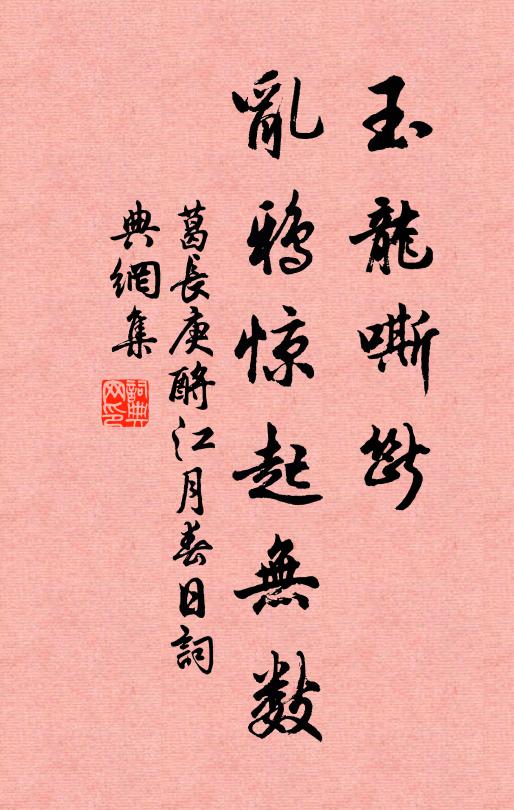 玉龍嘶斷
亂鴉惊起無數
葛長庚酹江月春日詞
典網集
詞典網印